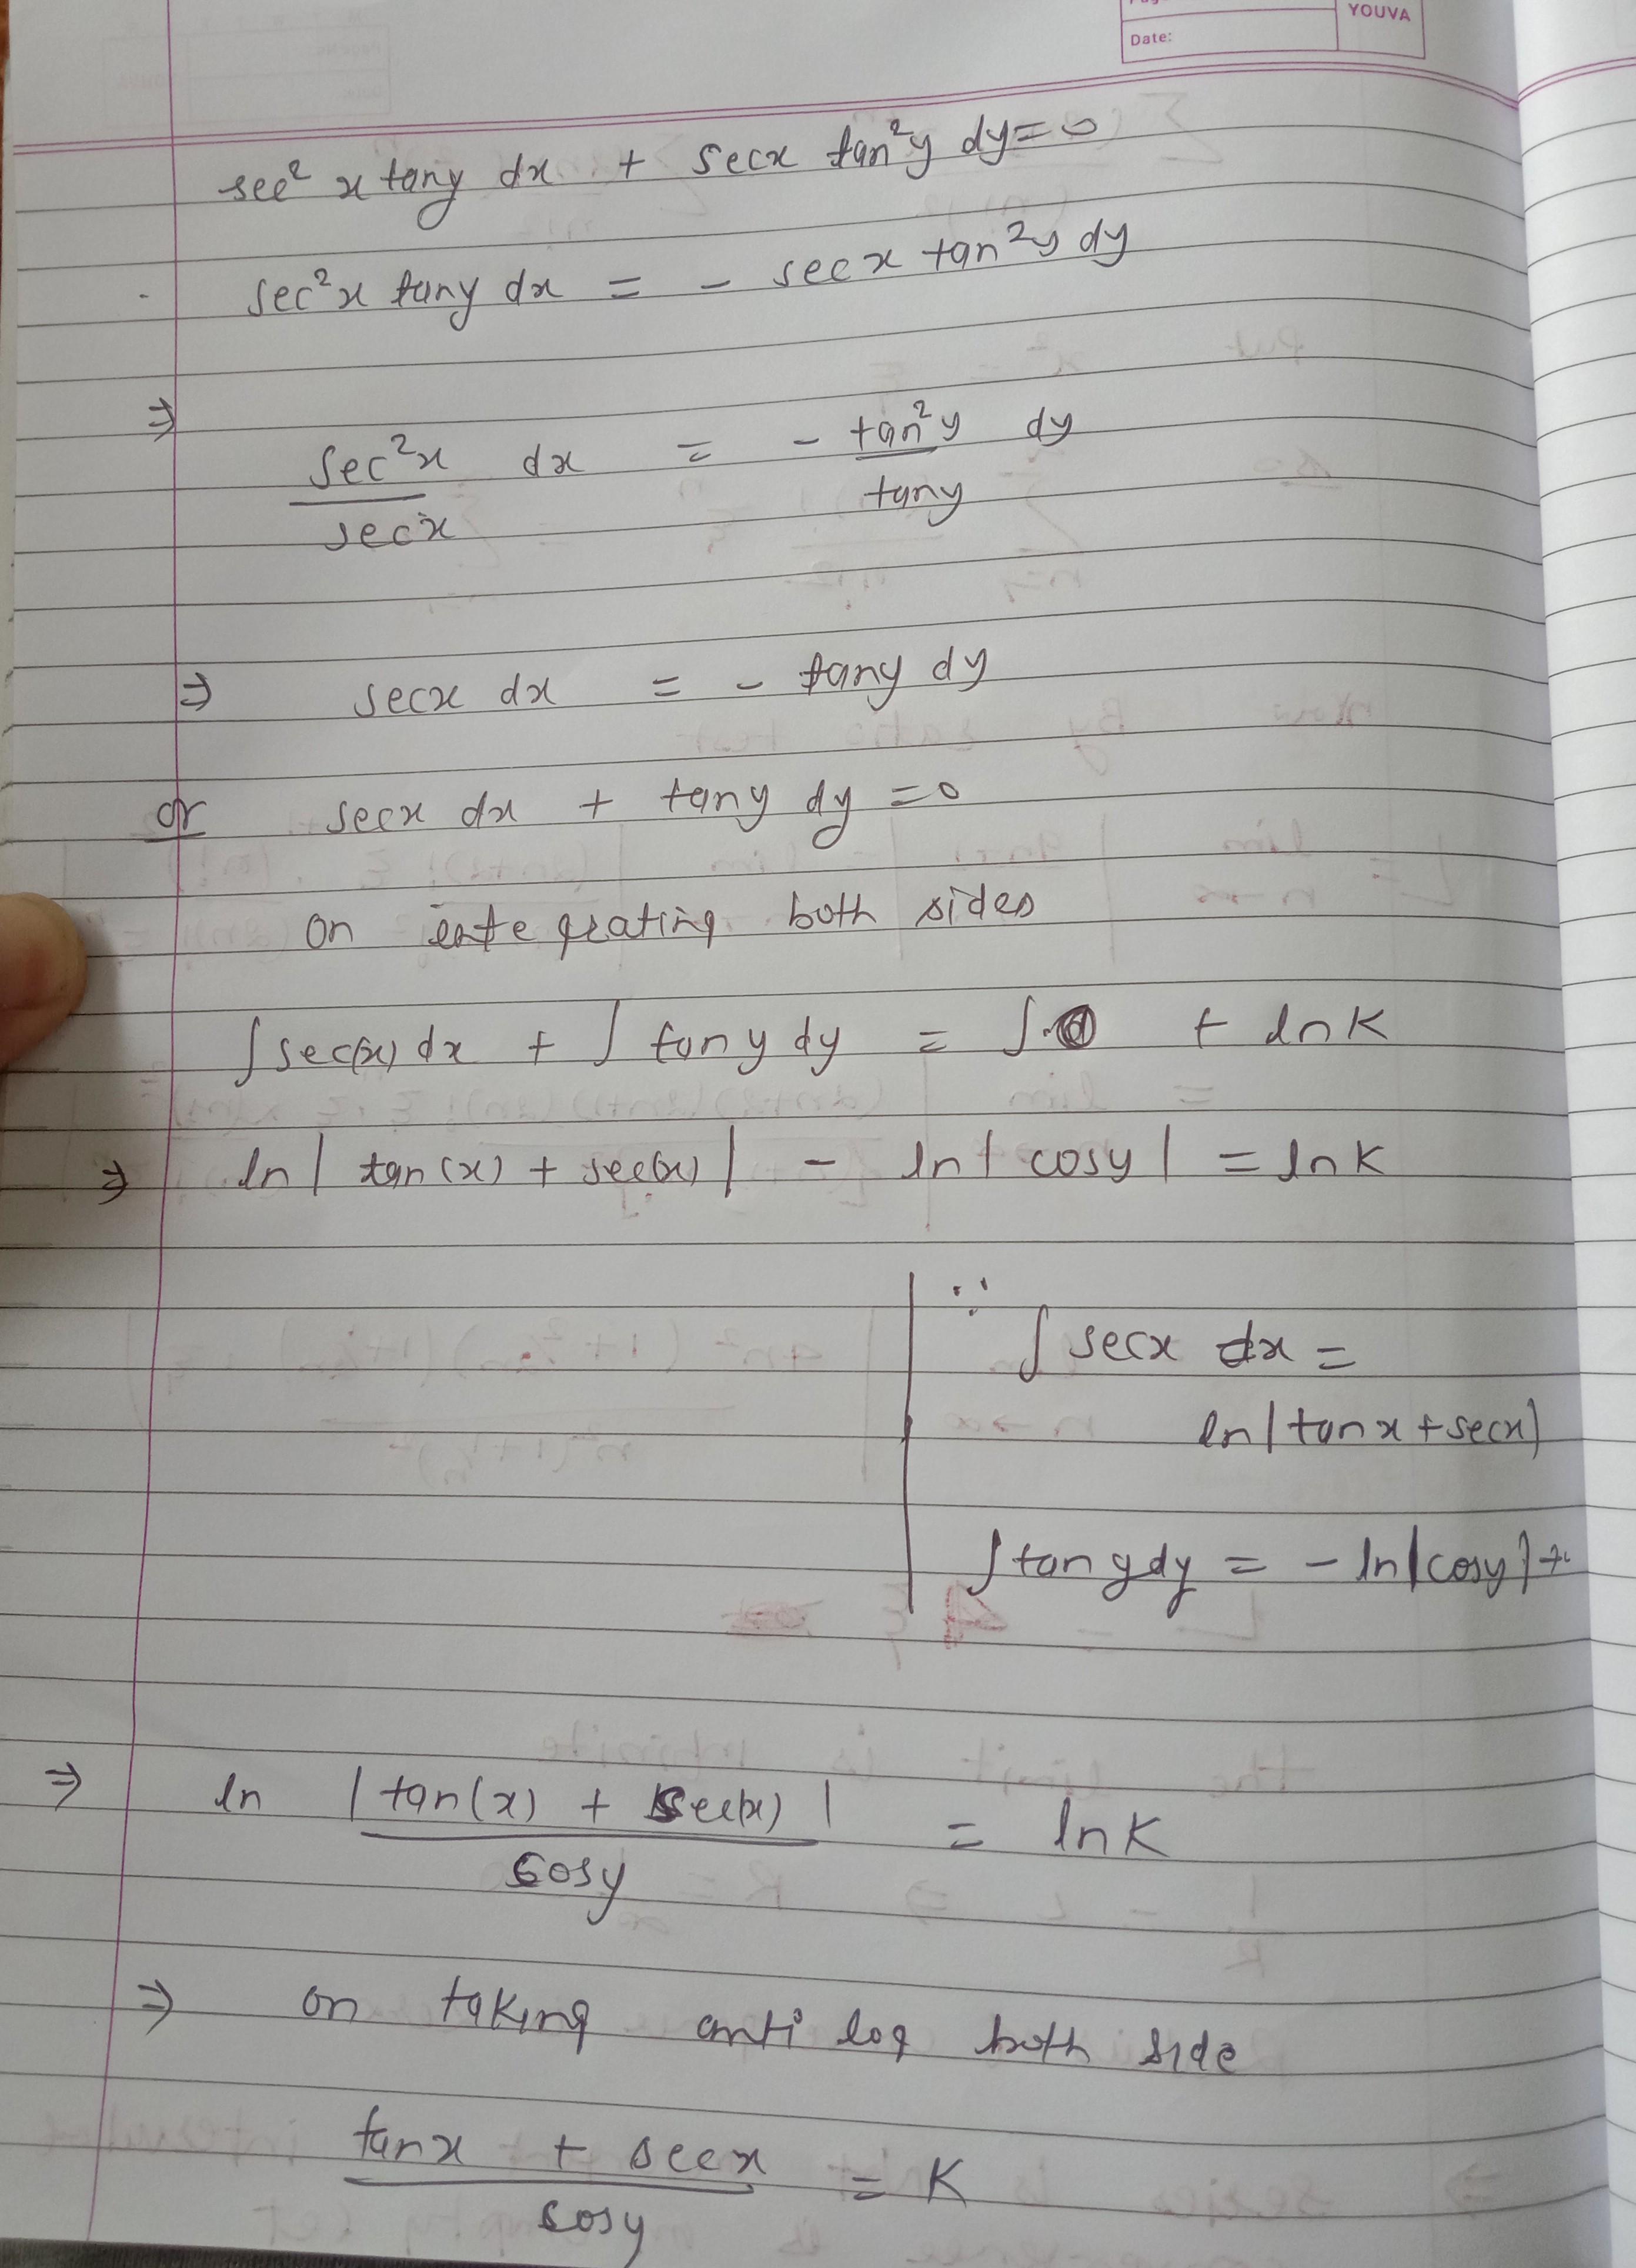 YOUVA
Date:
sec² x tany dx + secx tan²y dy=0
sec²x tany dx = - secx tan²y dy
⇒ sec²x/secx dx = - tan²y/tany dy
⇒ secx dx = - tany dy
or secx dx + tany dy =0
on integrating both sides
∫sec(x) dx + ∫ tany dy = ∫0 + lnK
⇒ ln| tan(x) + sec(x)| - ln| cosy| = lnK
∵ ∫ secx dx =
ln|tanx+secx|
∫tanydy = -ln|cosy|+
⇒ ln |tan(x) + sec(x)|/cosy = lnK
⇒ on taking anti log both side
tanx + secx/cosy = K